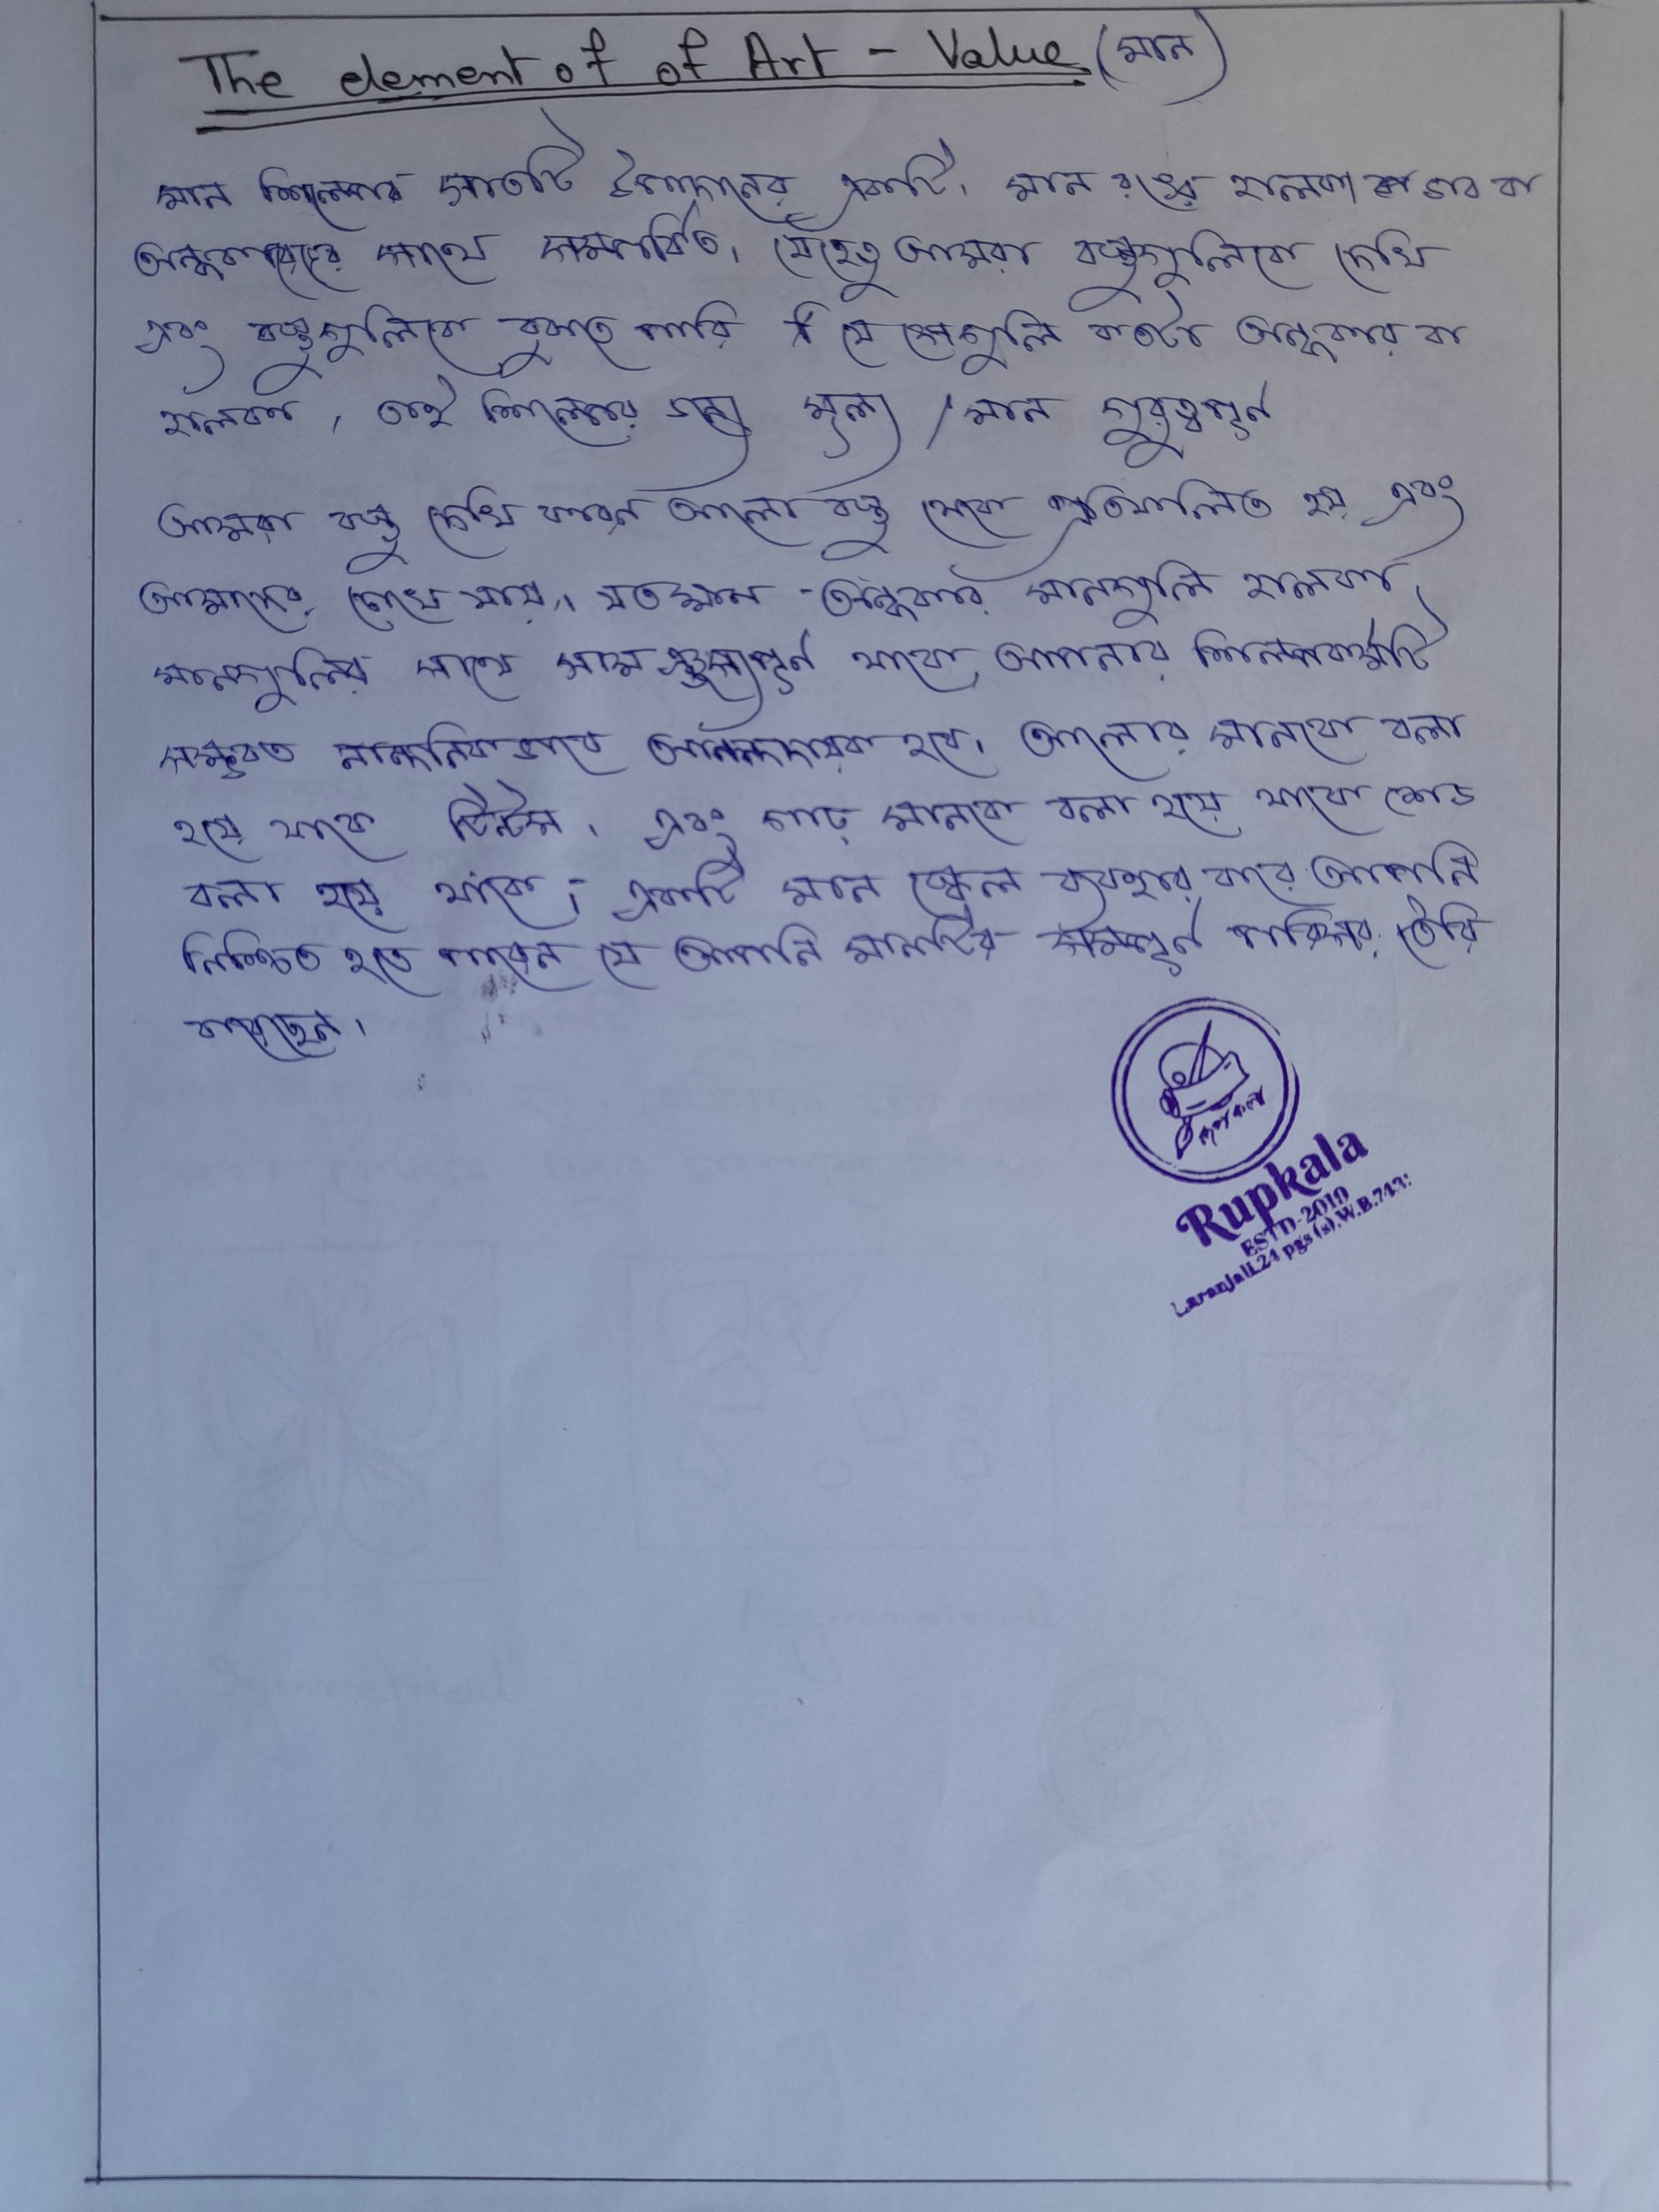 The element of of Art - Value (মান)
মান শিল্পের সাতটি উপাদানের একটি। মান রঙের হালকা ভাব বা
অন্ধকারের সাথে সম্পর্কিত। যেহেতু আমরা বস্তুগুলিকে দেখি
এবং বস্তুগুলিকে বুঝতে পারি যে সেগুলি কতটা অন্ধকার বা
হালকা, তাই শিল্পের জন্য মূল্য / মান গুরুত্বপূর্ণ
আমরা বস্তু দেখি কারন আলো বস্তু থেকে প্রতিফলিত হয় এবং
আমাদের চোখে যায়। যতক্ষন অন্ধকার মানগুলি হালকা
মানগুলির সাথে সামঞ্জস্যপূর্ণ থাকে, আপনার শিল্পকর্মটি
সম্ভবত নান্দনিকভাবে আনন্দদায়ক হবে। আলোর মানকে বলা
হয়ে থাকে টিন্টস। এবং গাঢ় মানকে বলা হয়ে থাকে শেড
বলা হয়ে থাকে; একটি মান স্কেল ব্যবহার করে আপনি
নিশ্চিত হতে পারেন যে আপনি মানটির সম্পূর্ণ পরিসর তৈরি
করেছেন।
রূপকলা
Rupkala
ESTD-2010
24 pgs (s).W.B.743